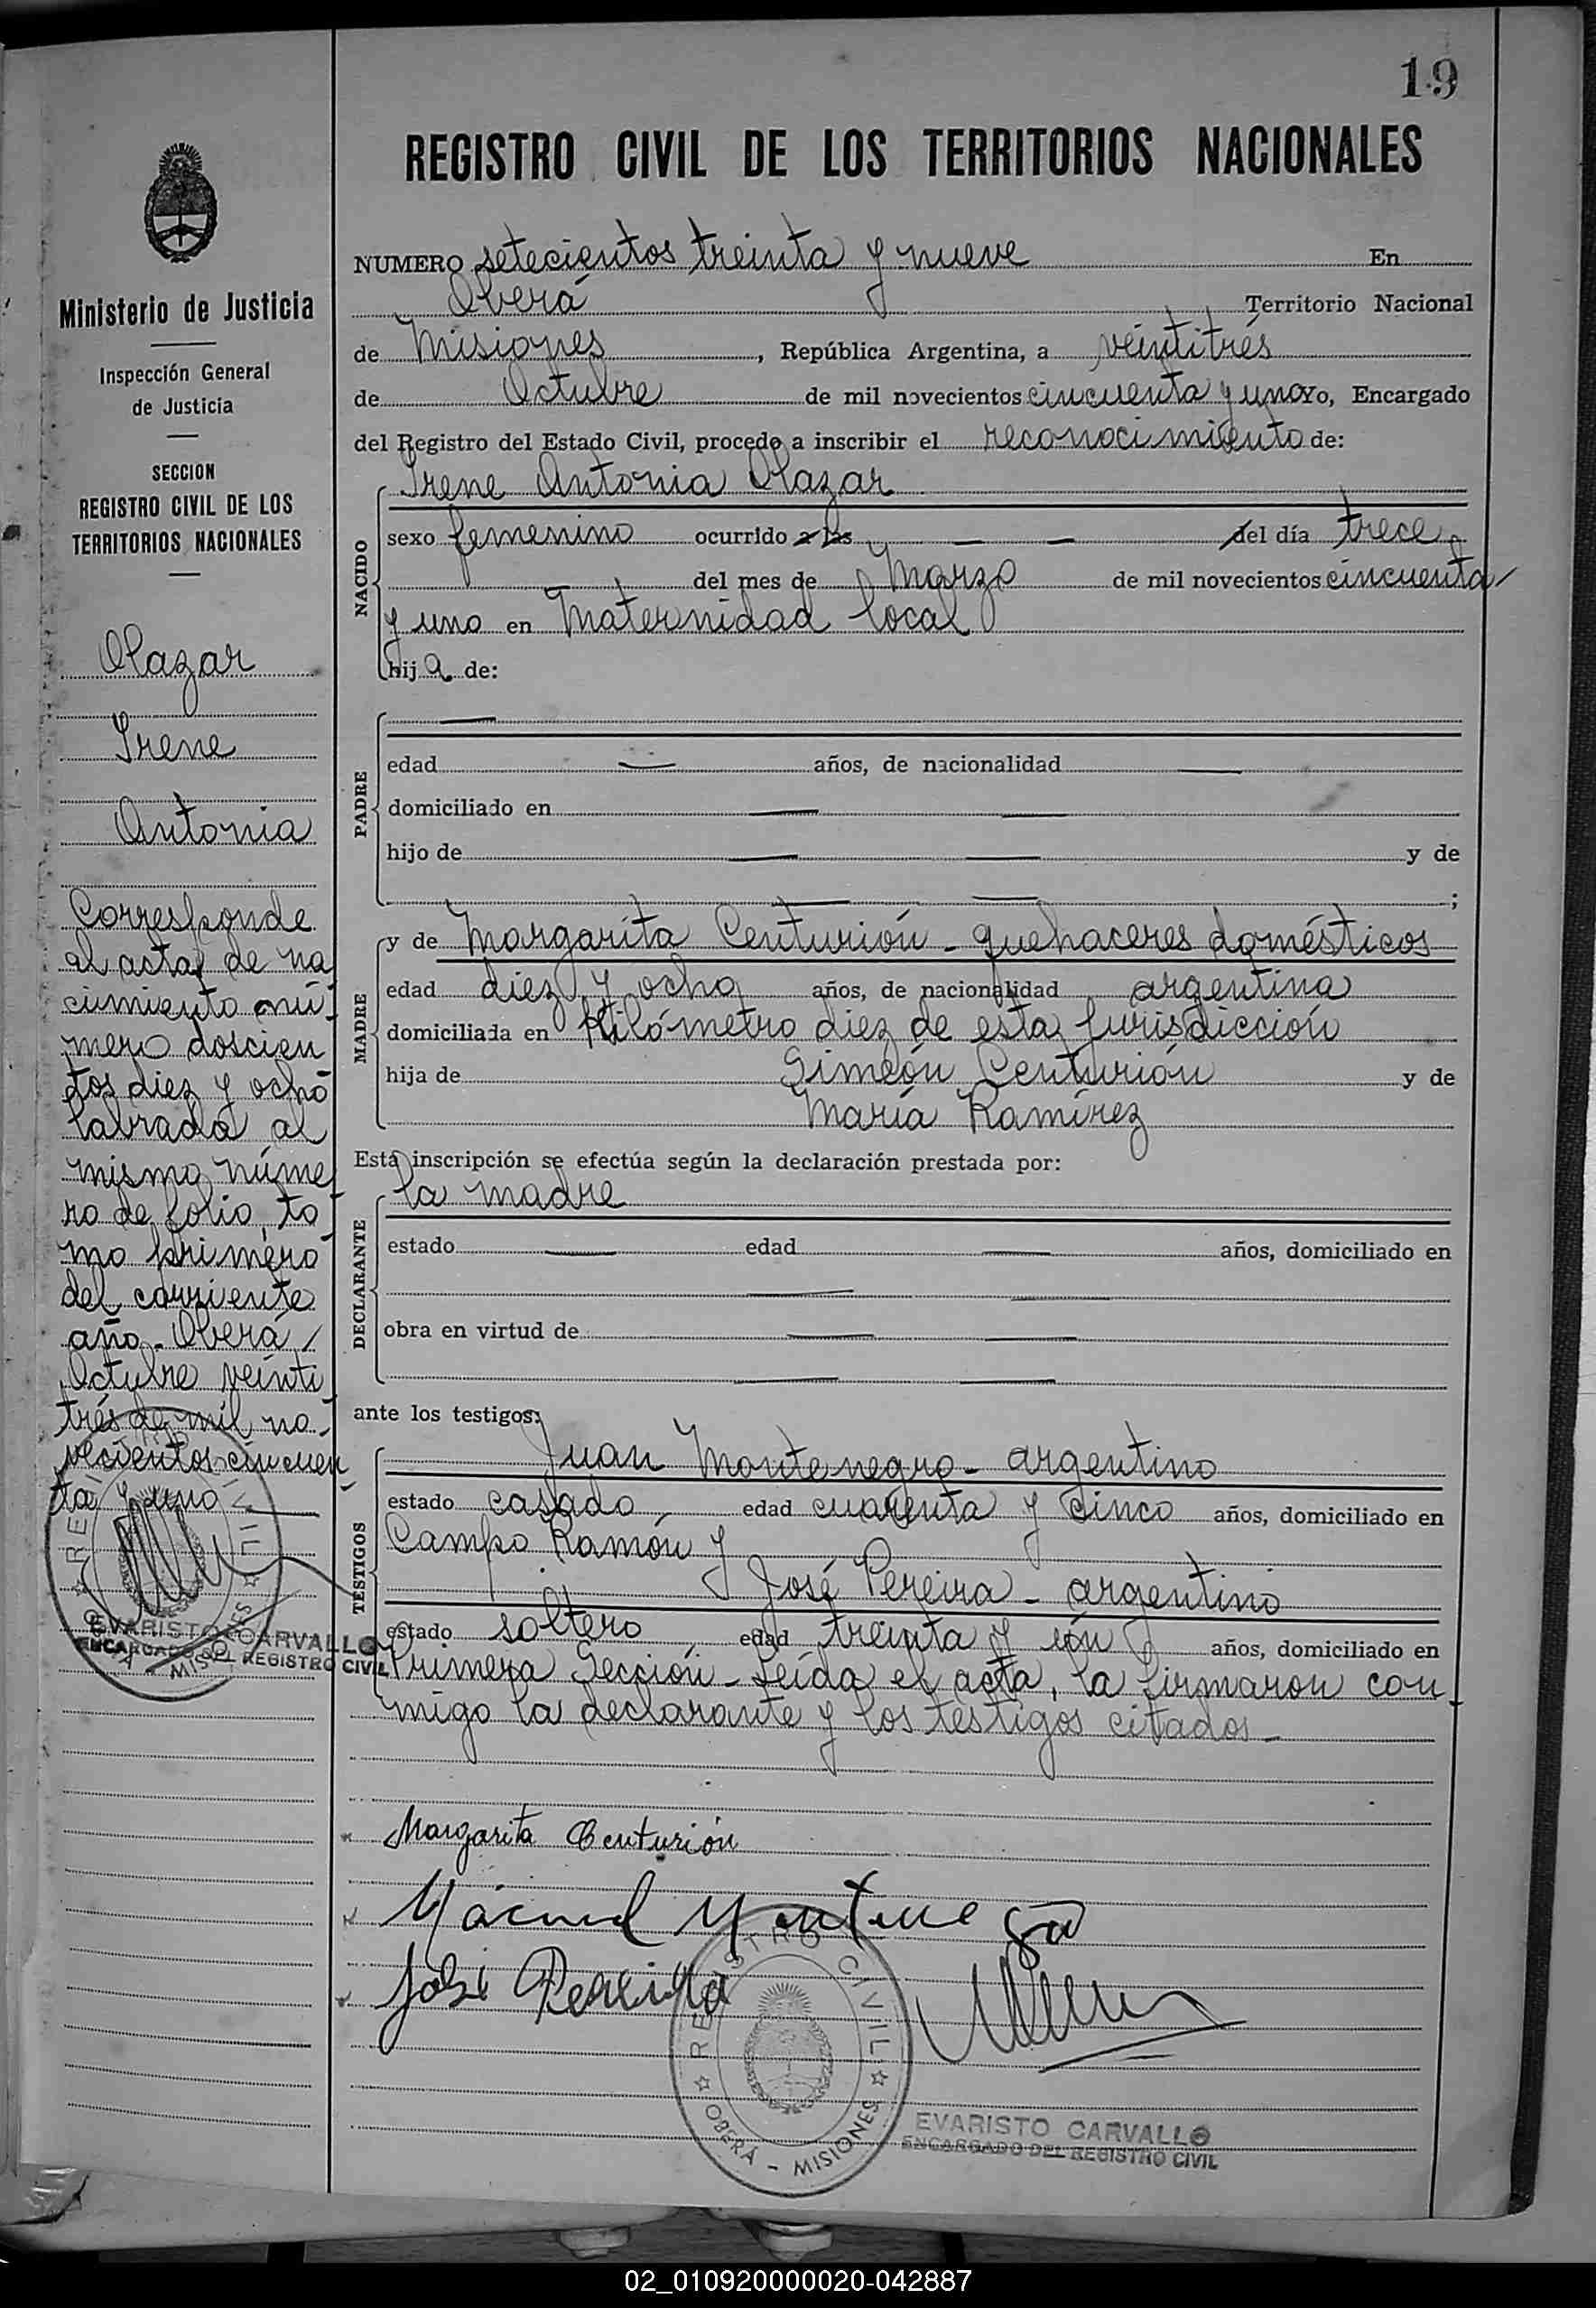 19
REGISTRO CIVIL DE LOS TERRITORIOS NACIONALES
NUMERO setecientos treinta y nueve En
Oberá Territorio Nacional
de Misiones, República Argentina, a veintitrés
de Octubre de mil novecientos cincuenta y uno Yo, Encargado
del Registro del Estado Civil, procedo a inscribir el reconocimiento de:
NACIDO
Irene Antonia Olazar
sexo femenino ocurrido a las — — del día trece
del mes de Marzo de mil novecientos cincuenta
y uno en Maternidad local
hija de:
PADRE
—
edad — años, de nacionalidad —
domiciliado en — —
hijo de — — y de
— — ;
MADRE
y de Margarita Centurión - quehaceres domésticos
edad diez y ocho años, de nacionalidad argentina
domiciliada en Kilómetro diez de esta jurisdicción
hija de Simeón Centurión y de
María Ramírez
Esta inscripción se efectúa según la declaración prestada por:
DECLARANTE
la madre
estado — edad — años, domiciliado en
— —
obra en virtud de — —
— —
ante los testigos:
TESTIGOS
Juan Montenegro - argentino
estado casado edad cuarenta y cinco años, domiciliado en
Campo Ramón y
José Pereira - argentino
estado soltero edad treinta y un años, domiciliado en
Primera Sección - Leída el acta, la firmaron con
migo la declarante y los testigos citados -
Margarita Centurión
José Pereira
REGISTRO CIVIL
OBERÁ - MISIONES
EVARISTO CARVALLO
ENCARGADO DEL REGISTRO CIVIL
Ministerio de Justicia
Inspección General
de Justicia
SECCION
REGISTRO CIVIL DE LOS
TERRITORIOS NACIONALES
Olazar
Irene
Antonia
Corresponde
al acta de na
cimiento nú-
mero doscien
tos diez y ocho
labrada al
mismo núme
ro de folio, to
mo primero
del corriente
año - Oberá,
Octubre veinti
trés de mil no-
vecientos cincuen
ta y uno
EVARISTO CARVALLO
ENCARGADO DEL REGISTRO CIVIL
02_010920000020-042887